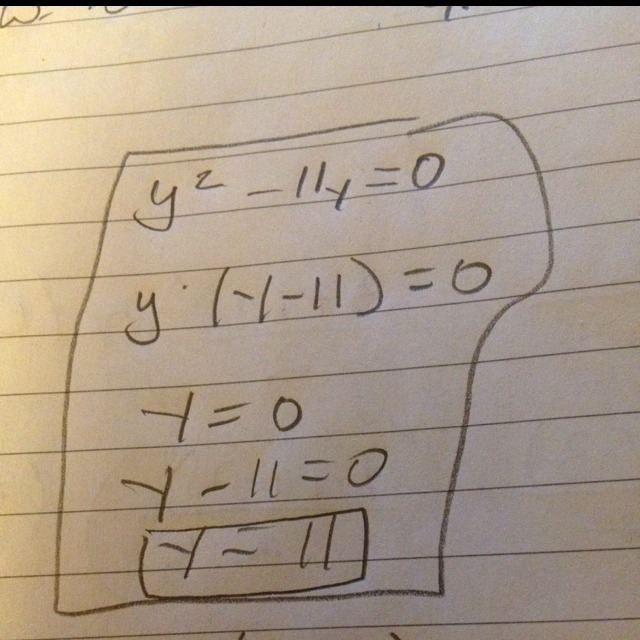 y² - 11y = 0
y · (y - 11) = 0
y = 0
y - 11 = 0
y = 11